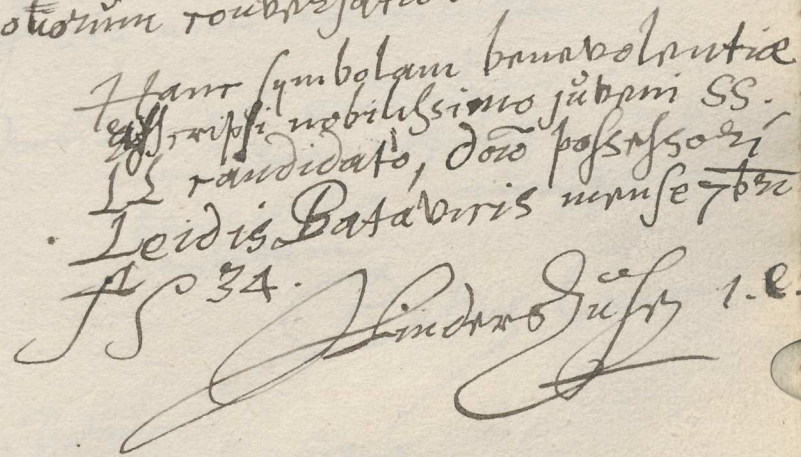 conversatio
Hanc symbolam benevolentiæ
asscripsi nobilissimo juveni SS.
LL candidato, dōīō possessori
Leidis Batavicis mense 7brī
34.